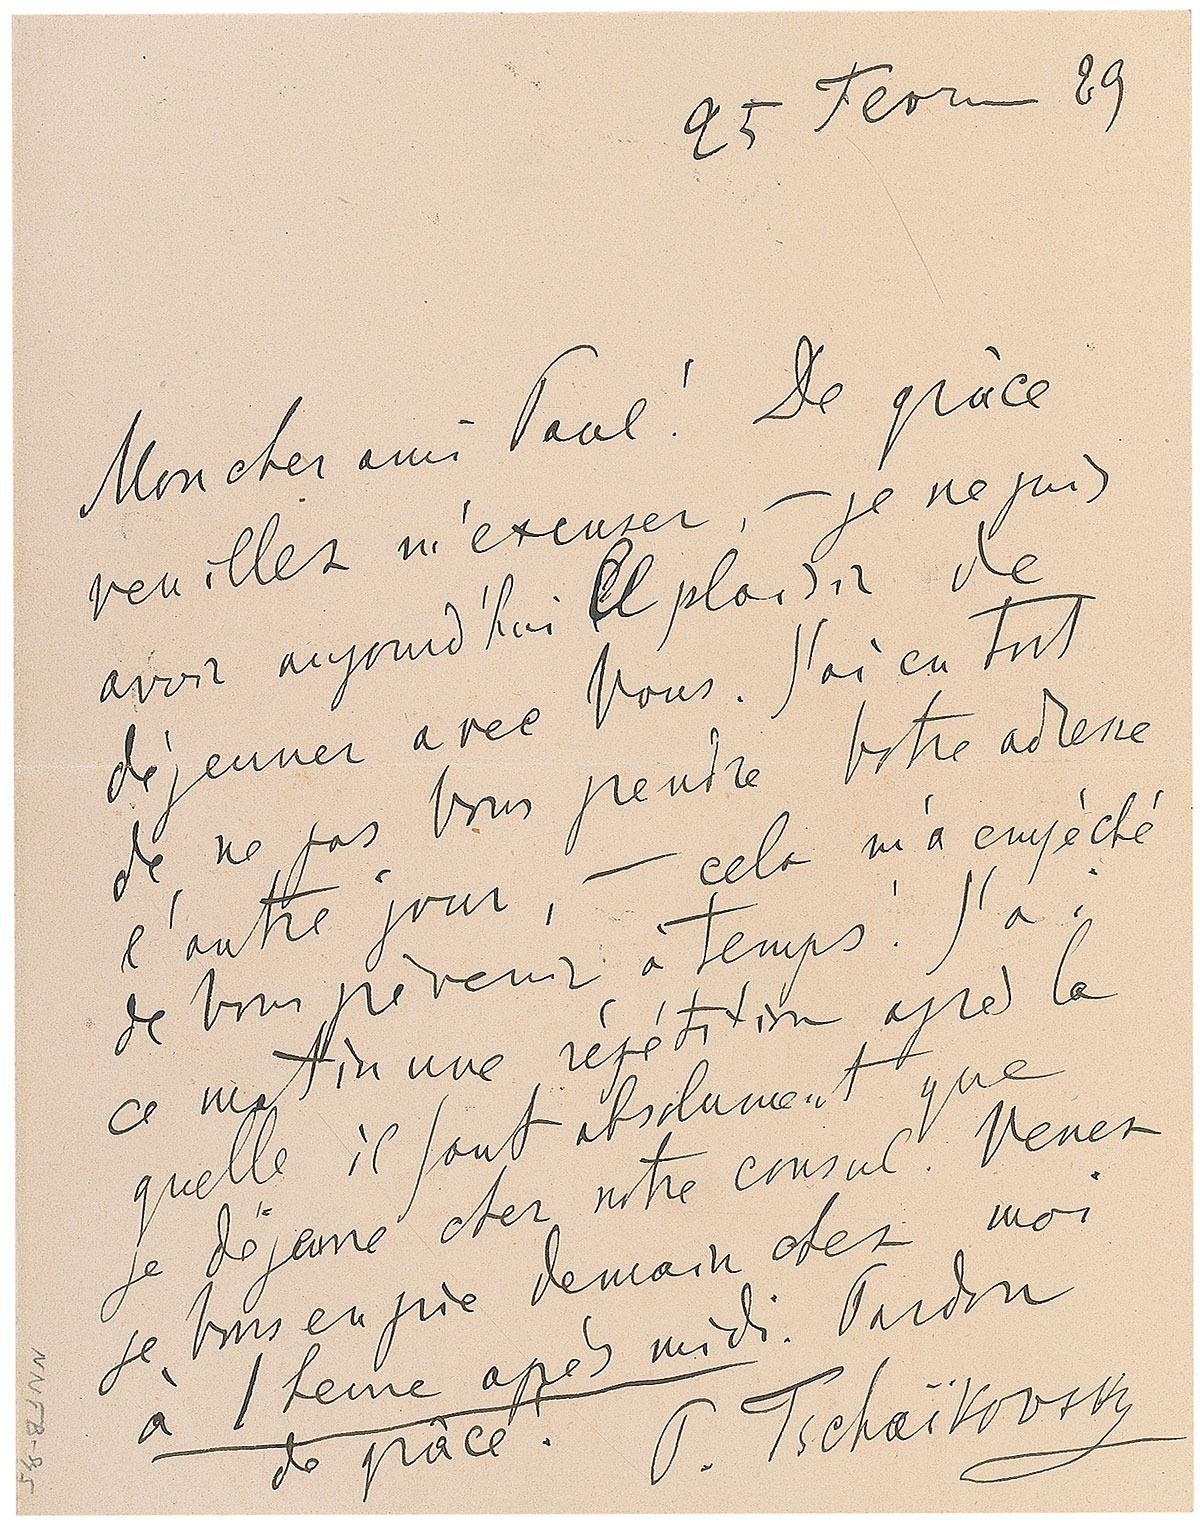 25 Fevr 89
Mon cher ami Paul! De grâce
veuillez m'excuser, – je ne puis
avoir aujourd'hui le plaisir de
déjeuner avec Vous. J'ai eu tort
de ne pas Vous prendre Votre adresse
l'autre jour, – cela m'a empêché
de Vous prévenir à temps. J'ai
ce matin une répétition après la
quelle il faut absolument que
je déjeune chez notre consul. Venez
je Vous en prie demain chez moi
à 1 heure après midi. Pardon
de grâce!
P. Tschaïkovsky